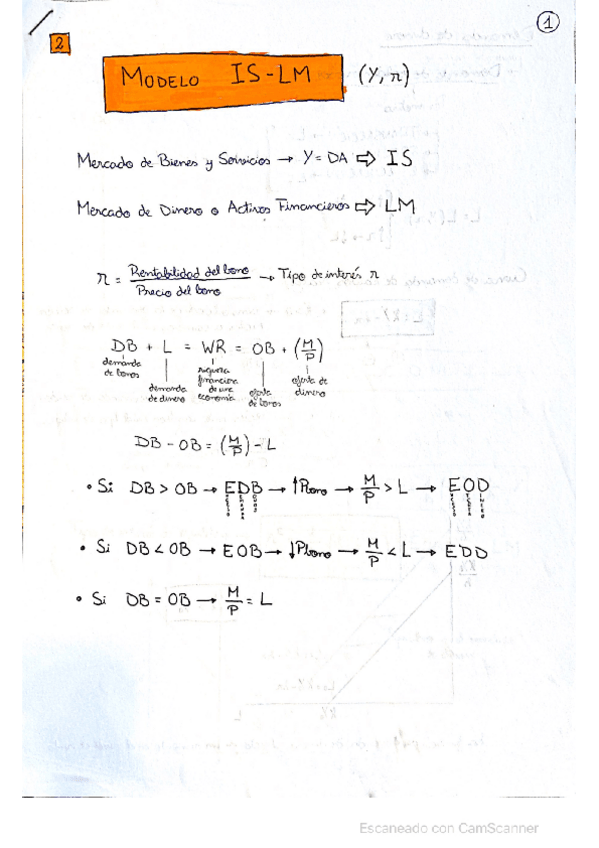 1
2
MODELO IS-LM (Y, r)
Mercado de Bienes y Servicios → Y = DA ⇨ IS
Mercado de Dinero o Activos Financieros ⇨ LM
r = Rentabilidad del bono / Precio del bono → Tipo de interés r
DB + L = WR = OB + (M/P)
demanda de bonos
demanda de dinero
riqueza financiera de una economía
oferta de bonos
oferta de dinero
DB - OB = (M/P) - L
• Si DB > OB → EDB → ↑Pbono → M/P > L → EOD
• Si DB < OB → EOB → ↓Pbono → M/P < L → EDD
• Si DB = OB → M/P = L
Escaneado con CamScanner